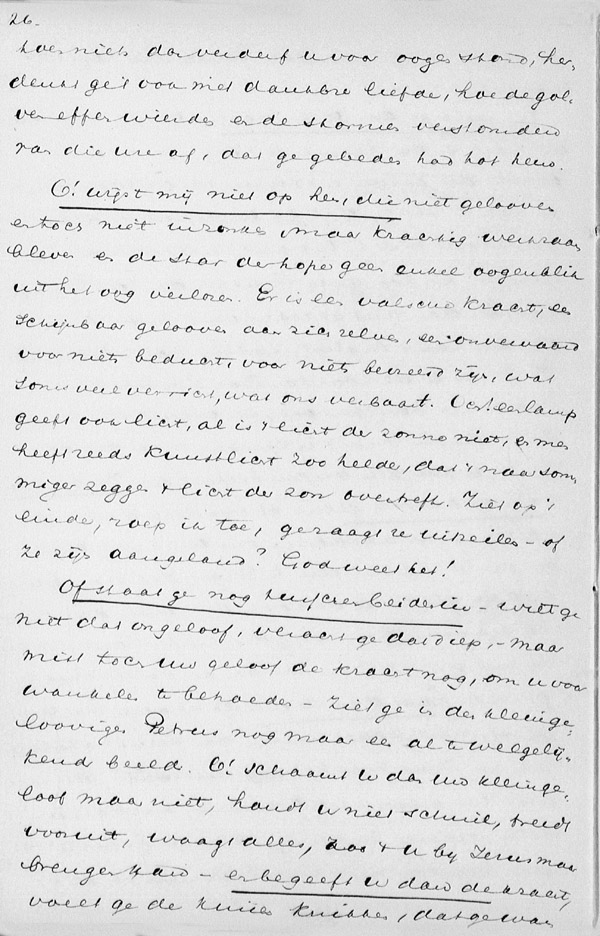 26.
toen niets dan verderf u voor oogen stond, her-
denkt ge 't ook met dankbre liefde, hoe de gol-
ven effen wierden en de stormen verstomden
van die ure af, dat ge gebeden had het hem.
O! wijst mij niet op hen, die niet gelooven
en toch niet inzonken, maar krachtig werkzaam
bleven en de star der hope geen enkel oogenblik
uit het oog verloren. Er is een valsche kracht, een
schijnbaar gelooven aan zich zelven, een onvervaard
voor niets beducht, voor niets bevreesd zijn, wat
soms veel verricht, wat ons verbaast. Och! een lamp
geeft ook licht, al is 't licht der zonne niet, en men
heeft reeds kunstlicht zoo helder, dat 't naar som-
miger zeggen 't licht der zon overtreft. Ziet op 't
einde, roep ik toe, gezaagt ze uitzeilen – of
ze zijn aangeland? God weet het!
Of staat ge nog tusschen beiden in – wilt ge
niet dat ongeloof, veracht ge dat diep, – maar
mist toch uw geloof de kracht nog, om u voor
wankelen te behoeden – ziet ge in den kleinge-
loovigen Petrus nog maar een al te welgelij-
kend beeld. O! schaamt u dan uw kleinge-
loof maar niet, houdt u niet schuil, treedt
vooruit, waagt alles, zoo 't u bij Jezus maar
brengen kan – en begeeft u dan de kracht,
voelt ge de knieen knikken, dat ge wan